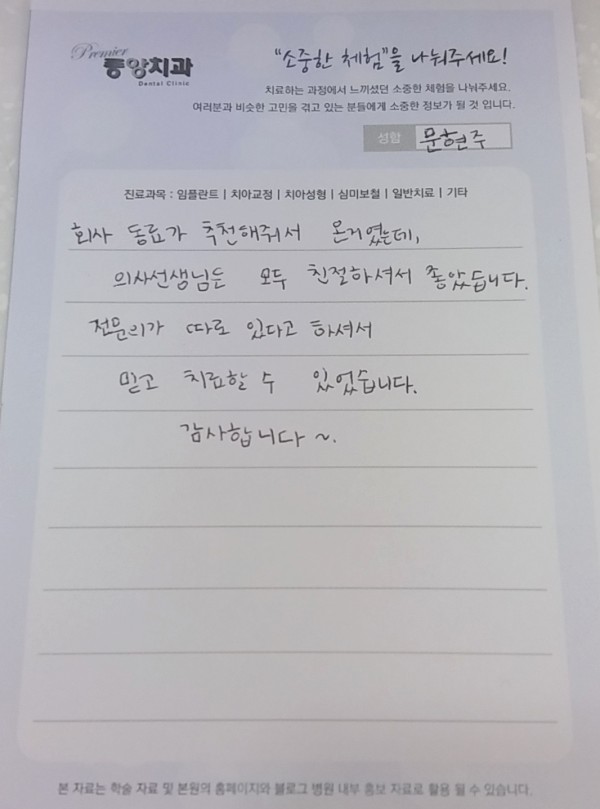 Premier
중앙치과
Dental Clinic
"소중한 체험"을 나눠주세요!
치료하는 과정에서 느끼셨던 소중한 체험을 나눠주세요.
여러분과 비슷한 고민을 겪고 있는 분들에게 소중한 정보가 될 것 입니다.
성함 문현주
진료과목 : 임플란트 | 치아교정 | 치아성형 | 심미보철 | 일반치료 | 기타
회사 동료가 추천해줘서 온거였는데,
의사선생님들 모두 친절하셔서 좋았습니다.
전문의가 따로 있다고 하셔서
믿고 치료할 수 있었습니다.
감사합니다~.
본 자료는 학술 자료 및 본원의 홈페이지와 블로그 병원 내부 홍보 자료로 활용 될 수 있습니다.